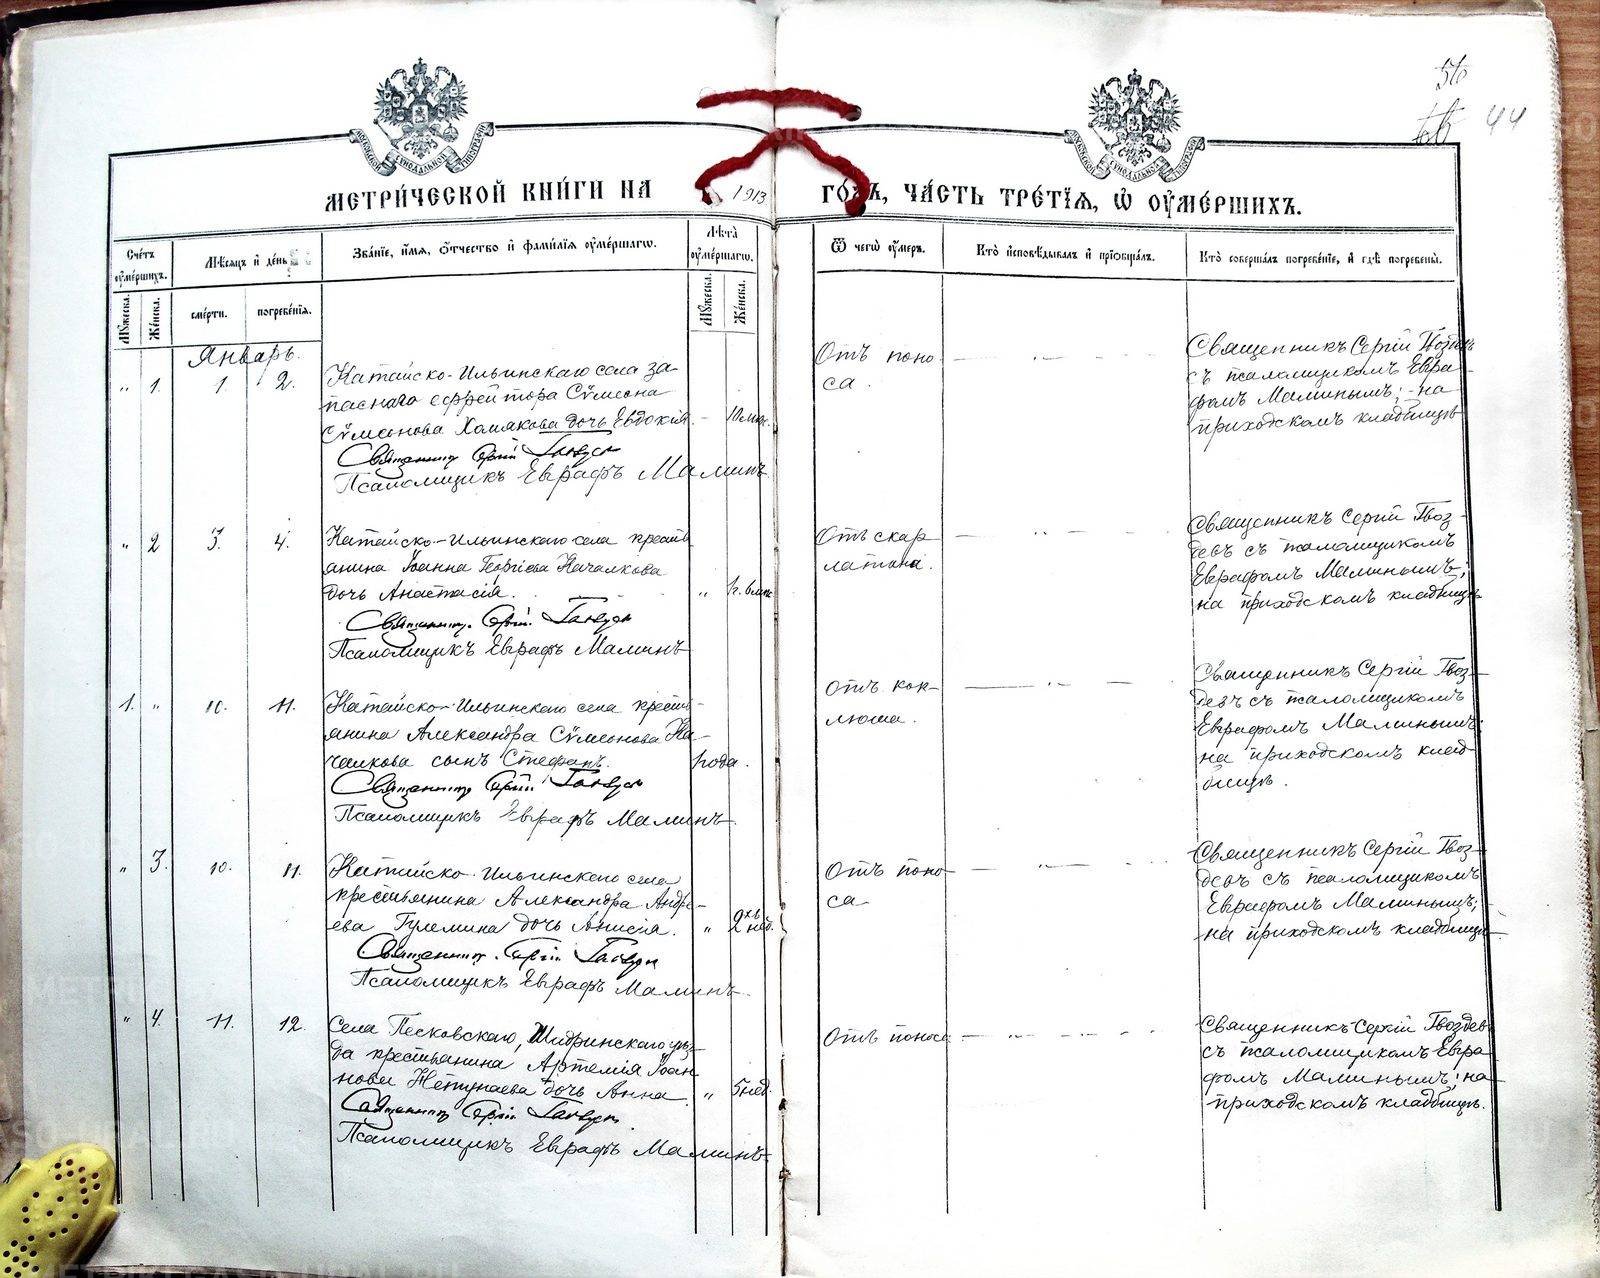 56
44
МЕТРИ́ЧЕСКОЙ КНИ́ГИ НА 1913 ГО́ДЪ, ЧА́СТЬ ТРЕ́ТІѦ, Ѡ҆ ОУ҆МЕ́РШИХЪ.
Сче́тъ оу҆ме́ршихъ.
Мѣ́сѧцъ и҆ де́нь
Зва́нїе, и҆́мѧ, ѻ҆́тчество и҆ фами́лїѧ оу҆ме́ршагѡ.
Лѣ́та оу҆ме́ршагѡ.
Ѿ чегѡ̀ оу҆́меръ.
Кто̀ и҆сповѣ́дывалъ и҆ прїѡбща́лъ.
Кто̀ соверша́лъ погребе́нїе, и҆ гдѣ̀ погребены̀.
Мꙋ́жеска.
Же́нска.
сме́рти.
погребе́нїѧ.
Мꙋ́жеска.
Же́нска.
Январь.
" 1. 1. 2.
Катайско-Ильинскаго села за-
паснаго ефрейтора Сѵмеона
Сѵмеонова Хомякова дочь Евдокія. - 10 мѣс.
Священникъ Сергій Гвоздевъ
Псаломщикъ Евграфъ Маминъ.
Отъ поно-
са.
Священникъ Сергій Гвоздевъ
съ псаломщикомъ Евгра-
фомъ Маминымъ; на
приходскомъ кладбищѣ
" 2 3. 4.
Катайско-Ильинскаго села кресть-
янина Іоанна Георгіева Качалкова
дочь Анастасія. "
Священникъ Сергій Гвоздевъ
Псаломщикъ Евграфъ Маминъ
Отъ скар-
латины.
Священникъ Сергій Гвоз-
девъ съ псаломщикомъ
Евграфомъ Маминымъ;
на приходскомъ кладбищѣ
1. " 10. 11.
Катайско-Ильинскаго села кресть-
янина Александра Сѵмеонова Ка-
чалкова сынъ Стефанъ. 1 года.
Священникъ Сергій Гвоздевъ
Псаломщикъ Евграфъ Маминъ.
Отъ кок-
люша.
Священникъ Сергій Гвоз-
девъ съ псаломщикомъ
Евграфомъ Маминымъ;
на приходскомъ клад-
бищѣ.
" 3. 10. 11.
Катайско-Ильинскаго села
крестьянина Александра Андре-
ева Гулемина дочь Анисія. " 2хъ нед.
Священникъ Сергій Гвоздевъ
Псаломщикъ Евграфъ Маминъ.
Отъ поно-
са
Священникъ Сергій Гвоз-
девъ съ псаломщикомъ
Евграфомъ Маминымъ;
на приходскомъ кладбищѣ.
" 4. 11. 12.
Села Песковскаго, Шадринскаго уѣз-
да крестьянина Артемія Іоан-
нова дочь Анна. " 5 нед.
Священникъ Сергій Гвоздевъ
Псаломщикъ Евграфъ Маминъ.
Отъ поноса
Священникъ Сергій Гвоздевъ
съ псаломщикомъ Евгра-
фомъ Маминымъ; на
приходскомъ кладбищѣ.